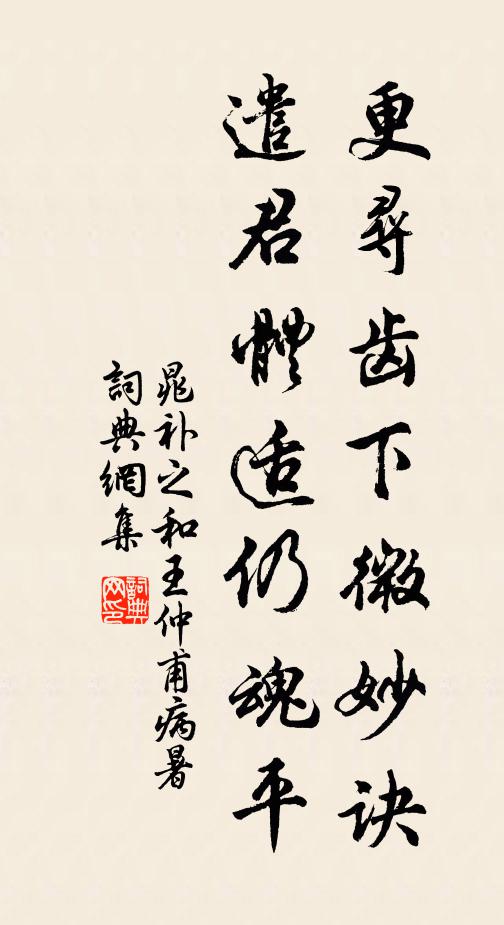 更尋齿下微妙诀
遣君體适仍魂平
晁补之和王仲甫病暑
詞典網集
詞典网印